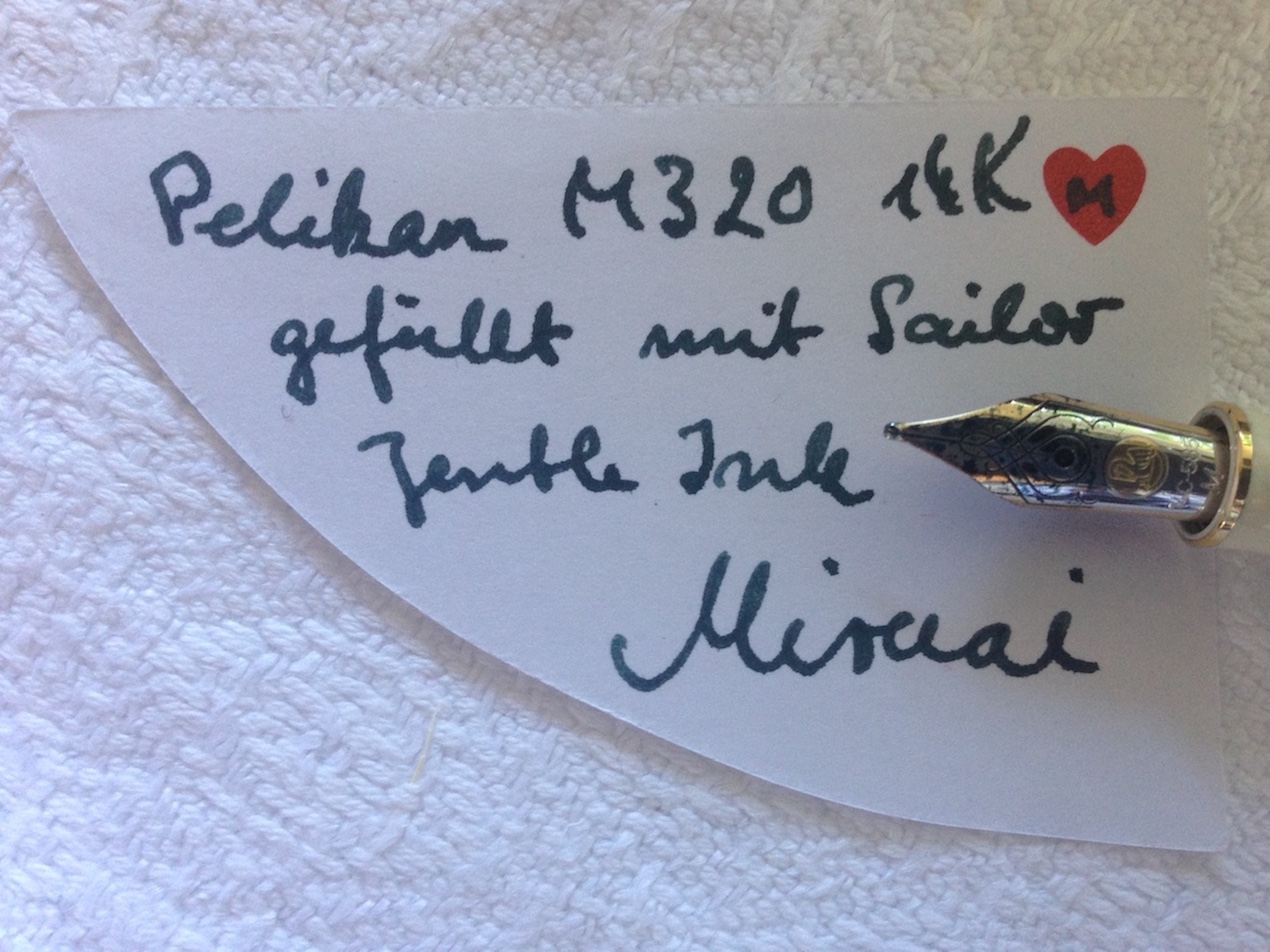 Pelikan M320 14K M
gefüllt mit Sailor
Jentle Ink
Miruai
C-585
M